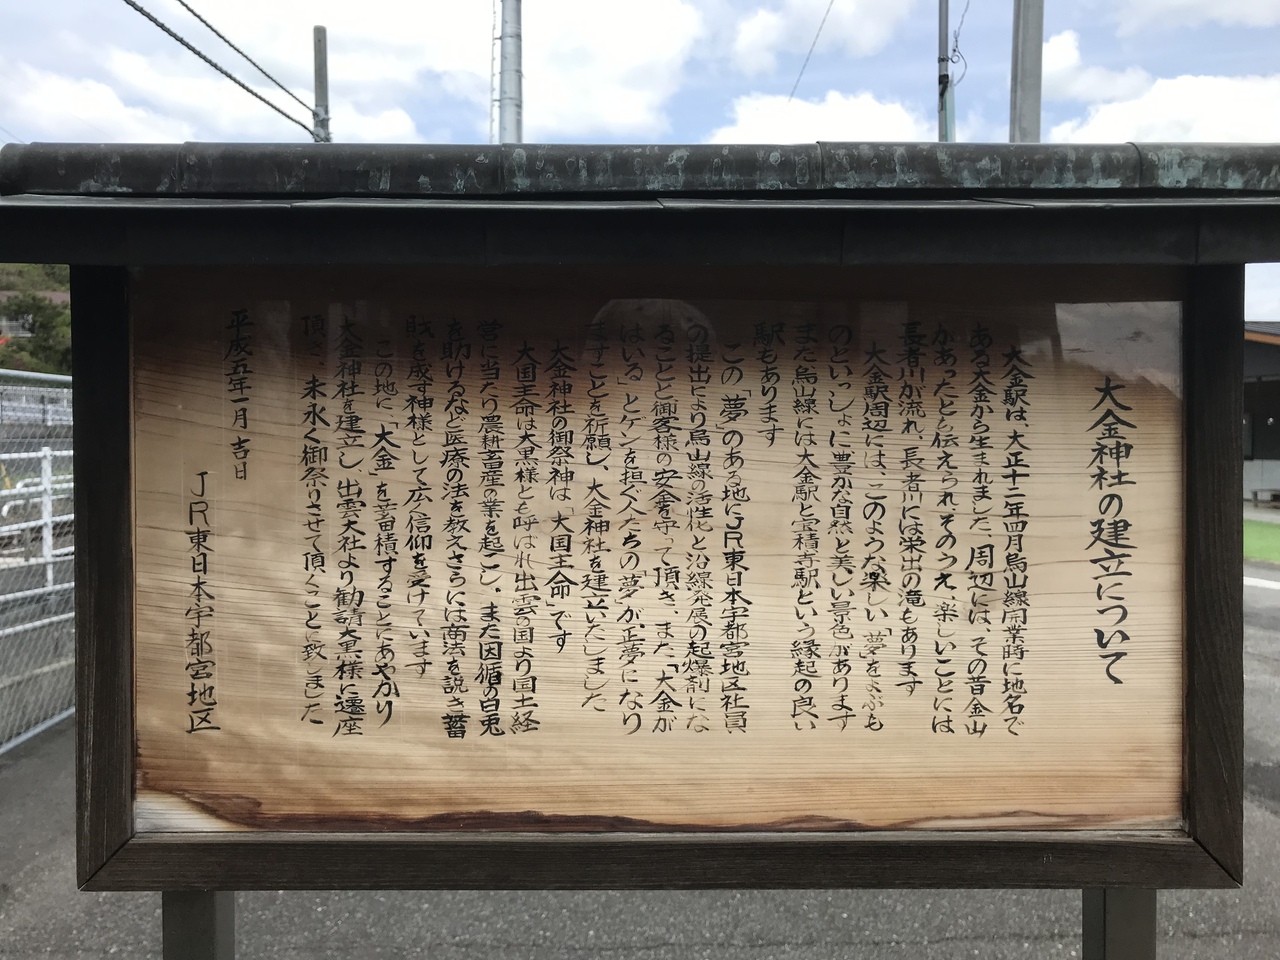 大金神社の建立について
大金駅は、大正十二年四月烏山線開業時に地名で
ある大金から生まれました、周辺には、その昔金山
があったとも伝えられ、そのうえ、楽しいことには
長者川が流れ、長者川には栄出の滝もあります
大金駅周辺には、このような楽しい「夢」をよぶも
のといっしょに豊かな自然と美しい景色があります
また烏山線には大金駅と宝積寺駅という縁起の良い
駅もあります
この「夢」のある地にJR東日本宇都宮地区社員
の提出により烏山線の活性化と沿線発展の起爆剤にな
ることと御客様の安全を守って頂き、また、「大金が
はいる」とゲンを担ぐ人たちの「夢」が、正夢になり
ますことを祈願し、大金神社を建立いたしました
大金神社の御祭神は、「大国主命」です
大国主命は大黒様とも呼ばれ出雲の国より国土経
営に当たり農耕畜産の業を起こし、また因循の白兎
を助けるなど医療の法を教えさらには商法を説き蓄
財を成す神様として広く信仰を受けています
この地に、「大金」を蓄積することにあやかり
大金神社を建立し、出雲大社より勧請大黒様に遷座
頂き、末永く御祭りさせて頂くことに致しました
平成五年一月吉日
JR東日本宇都宮地区